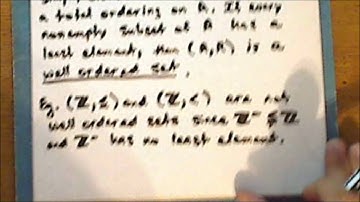 a total ordering on A. If every
nonempty subset of A has a
least element, then (A,R) is a
well ordered set.
Eg. (ℤ,≤) and (ℤ,<) are not
well ordered sets since ℤ⁻ ⊊ ℤ
and ℤ⁻ has no least element.